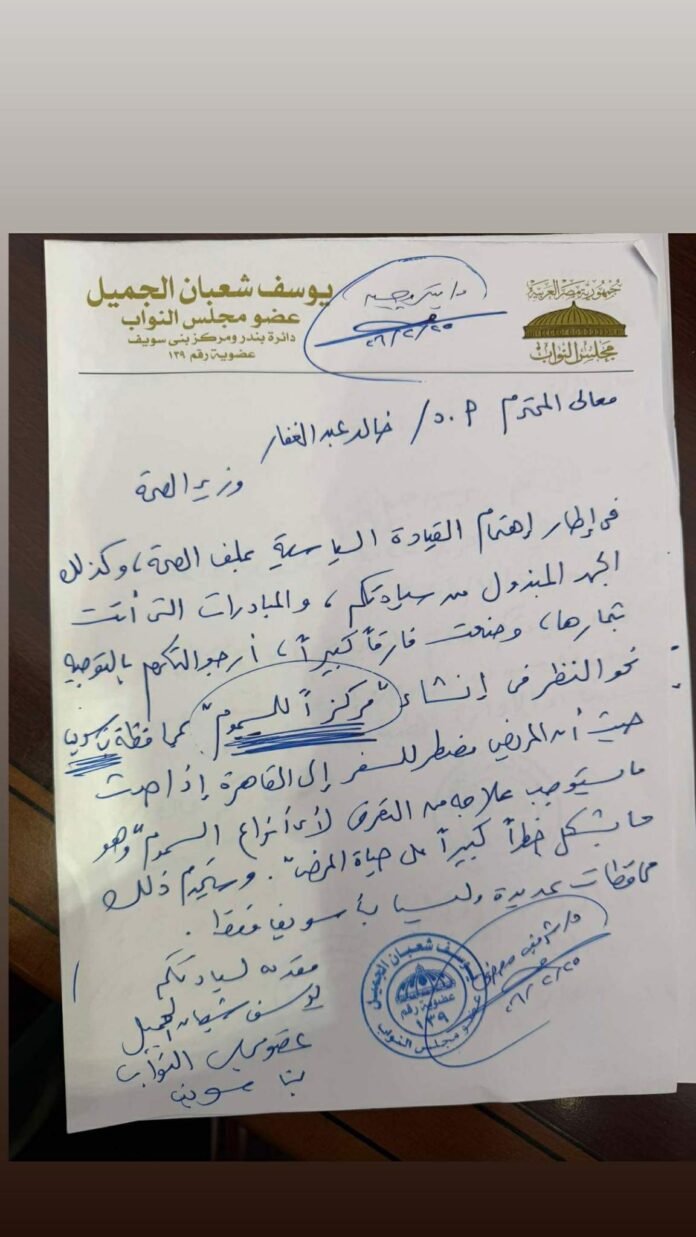 يوسف شعبان الجميل
عضو مجلس النواب
دائرة بندر ومركز بنى سويف
عضوية رقم ١٣٩
جمهورية مصر العربية
مجلس النواب
٢٦/٢/٢٥
معالى المحترم أ.د/ خالد عبد الغفار
وزير الصحة
فى إطار إهتمام القيادة السياسية بملف الصحة، وكذلك
الجهد المبذول من سيادتكم، والمبادرات التى أتت
ثمارها، وصنعت فارقاً كبيراً، أرجو التكرم بالتوجيه
نحو النظر فى إنشاء "مركزاً للسموم" بمحافظة
حيث أن المريض مضطر للسفر إلى القاهرة إذا حدث
ما يستوجب علاجه من التعرض لأى أنواع السموم "وهو
ما يشكل خطراً كبيراً على حياة المرضى". وسيخدم ذلك
محافظات عديدة وليس فقط.
مقدمه لسيادتكم
يوسف شعبان الجميل
عضو مجلس النواب
بنى سويف
يوسف شعبان الجميل
عضوية رقم
١٣٩
عضو مجلس النواب
٢٦/٢/٢٥